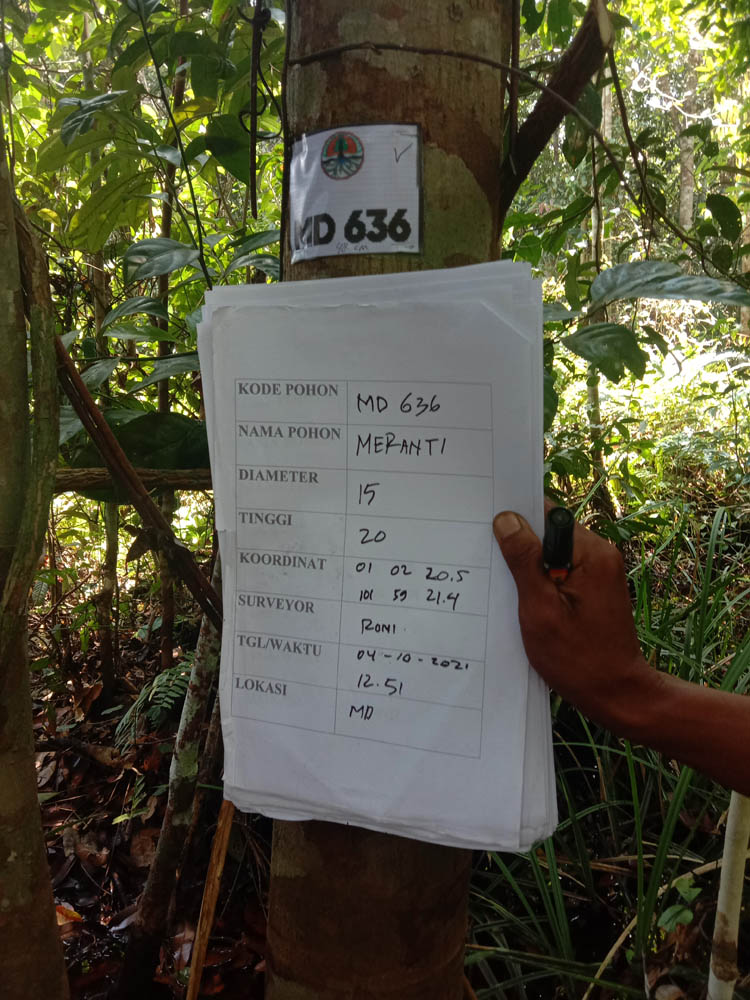 MD 636
48 cm
KODE POHON MD 636
NAMA POHON MERANTI
DIAMETER 15
TINGGI 20
KOORDINAT 01 02 20.5
101 59 21.4
SURVEYOR RONI.
TGL/WAKTU 04-10-2021
12.51
LOKASI MD